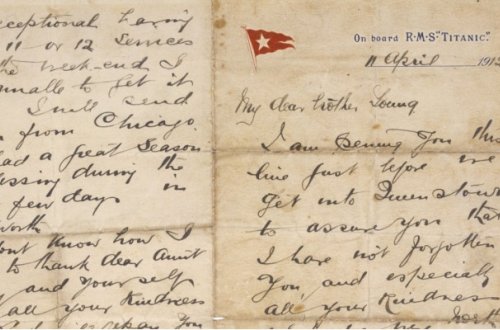 exceptional having
11 or 12 services
the week-end I
unable to get it
I will send
from Chicago.
had a great season
blessing during the
few days in
worth
dont know how I
to thank dear Aunt
and yourself
all your kindness
you
On board R·M·S "TITANIC".
11 April 191
My dear brother Young
I am penning you this
line just before we
get into Queenstown
to assure you that
I have not forgotten
you and especially
all your kindness